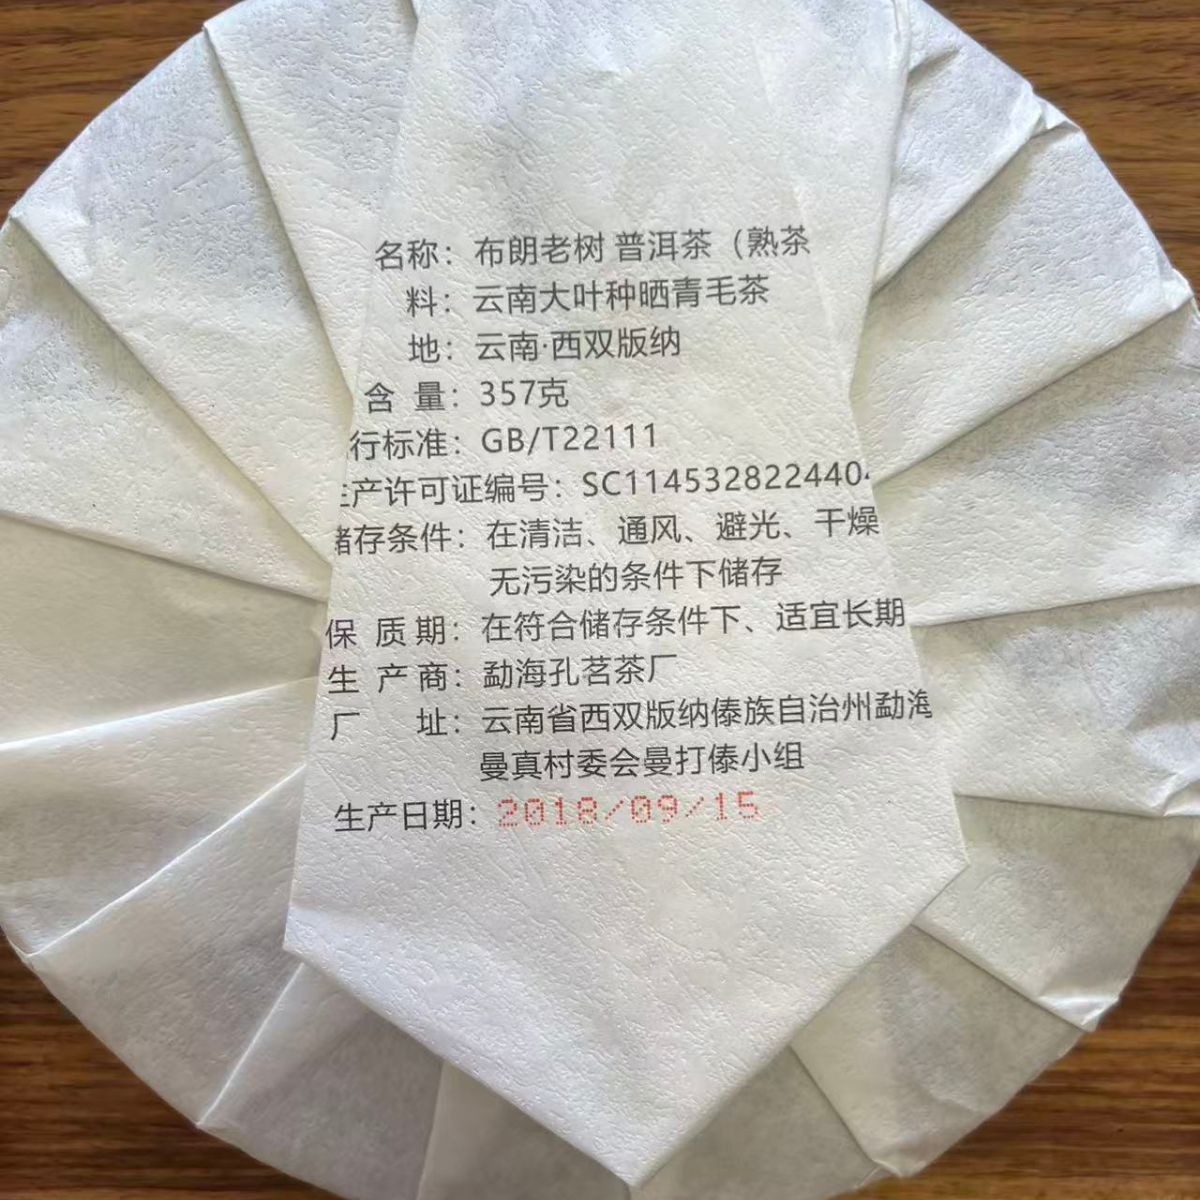 名称：布朗老树 普洱茶（熟茶
料：云南大叶种晒青毛茶
地：云南·西双版纳
含 量：357克
行标准：GB/T22111
产许可证编号：SC1145328224404
储存条件：在清洁、通风、避光、干燥
无污染的条件下储存
保 质 期：在符合储存条件下、适宜长期
生 产 商：勐海孔茗茶厂
厂 址：云南省西双版纳傣族自治州勐海
曼真村委会曼打傣小组
生产日期：2018/09/15